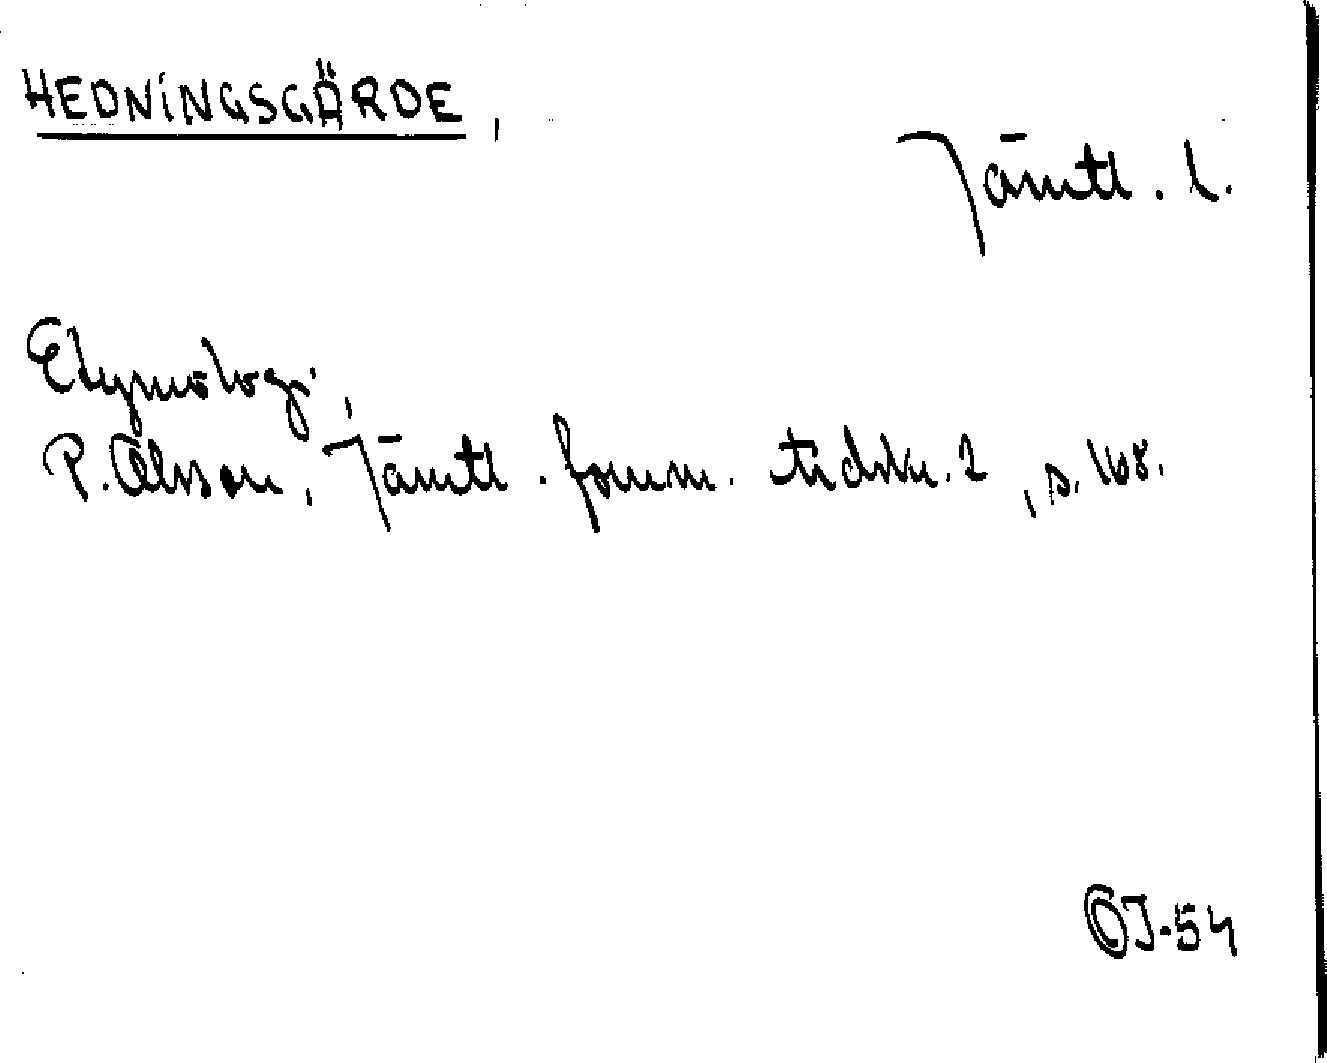 HEDNINGSGÄRDE,
Jämtl. l.
Etymologi,
P. Olsson, Jämtl. fornm. tidskr. 2, s. 168.
OJ-54